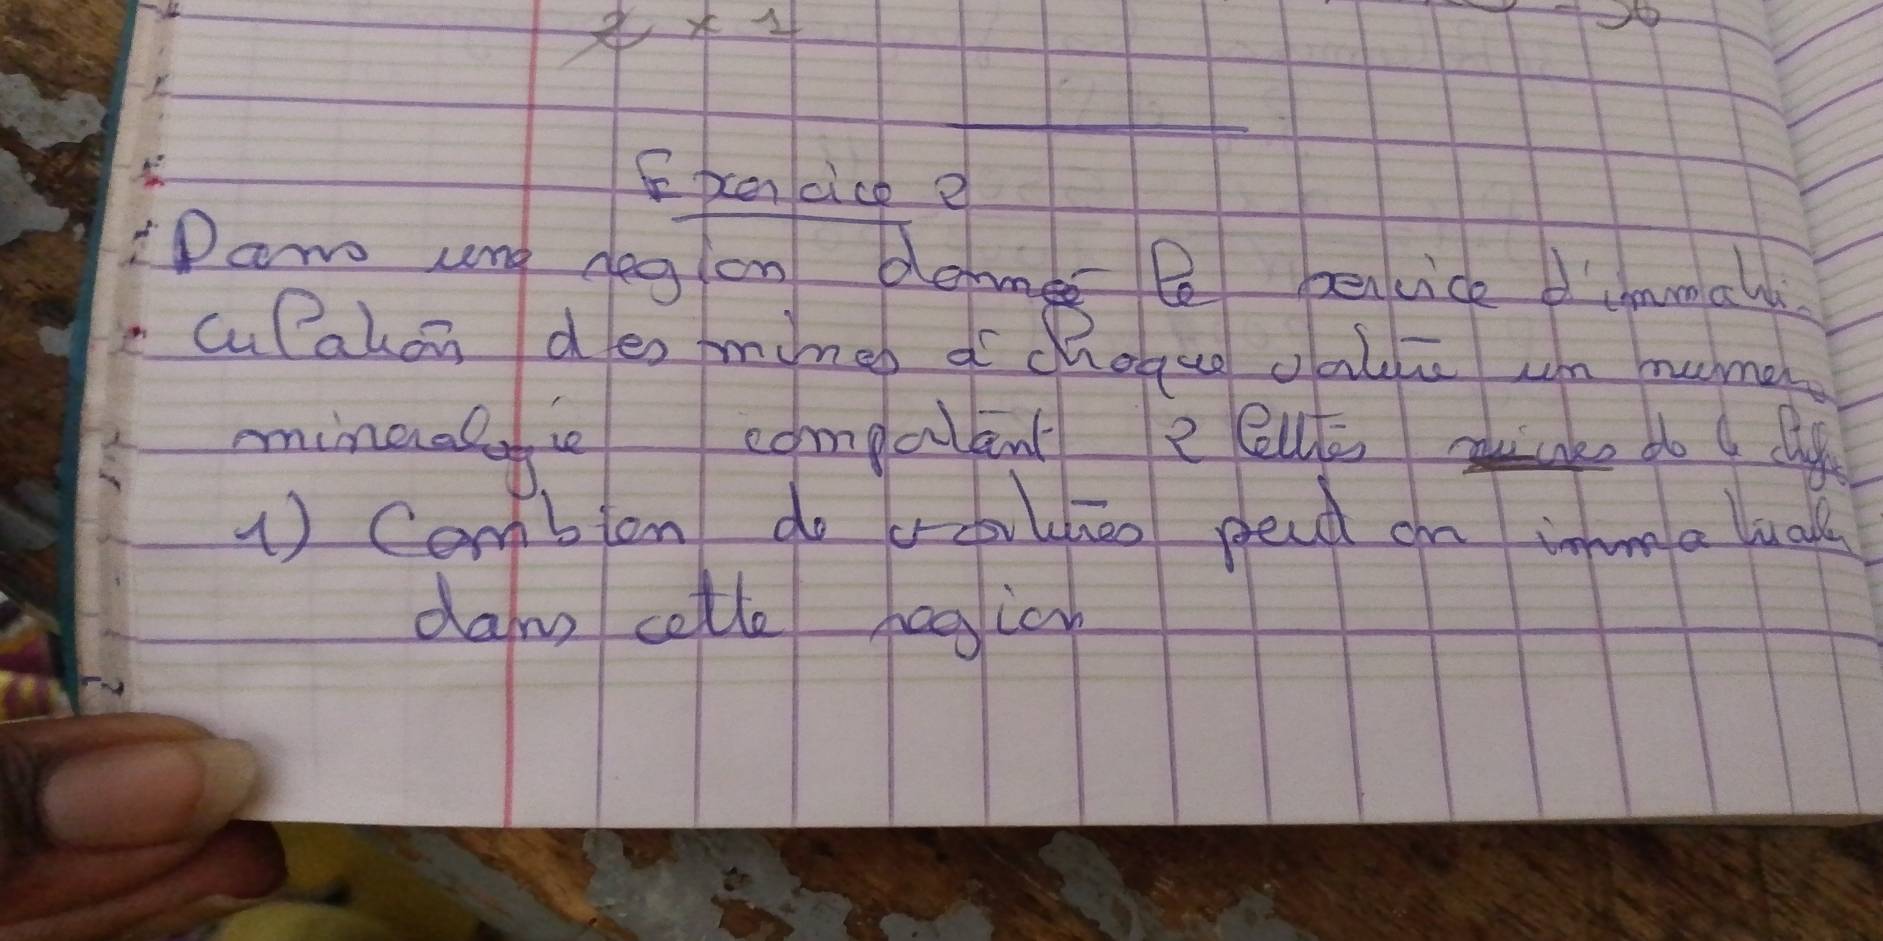 2 x 1
Exercice 2
Dans une region donnée le service d'immatri-
culation des mines a chaque voiture un numero
mineralogie comportant 2 lettres de 4 chiff
1) Combien de voitures peut on immatricul
dans cette region